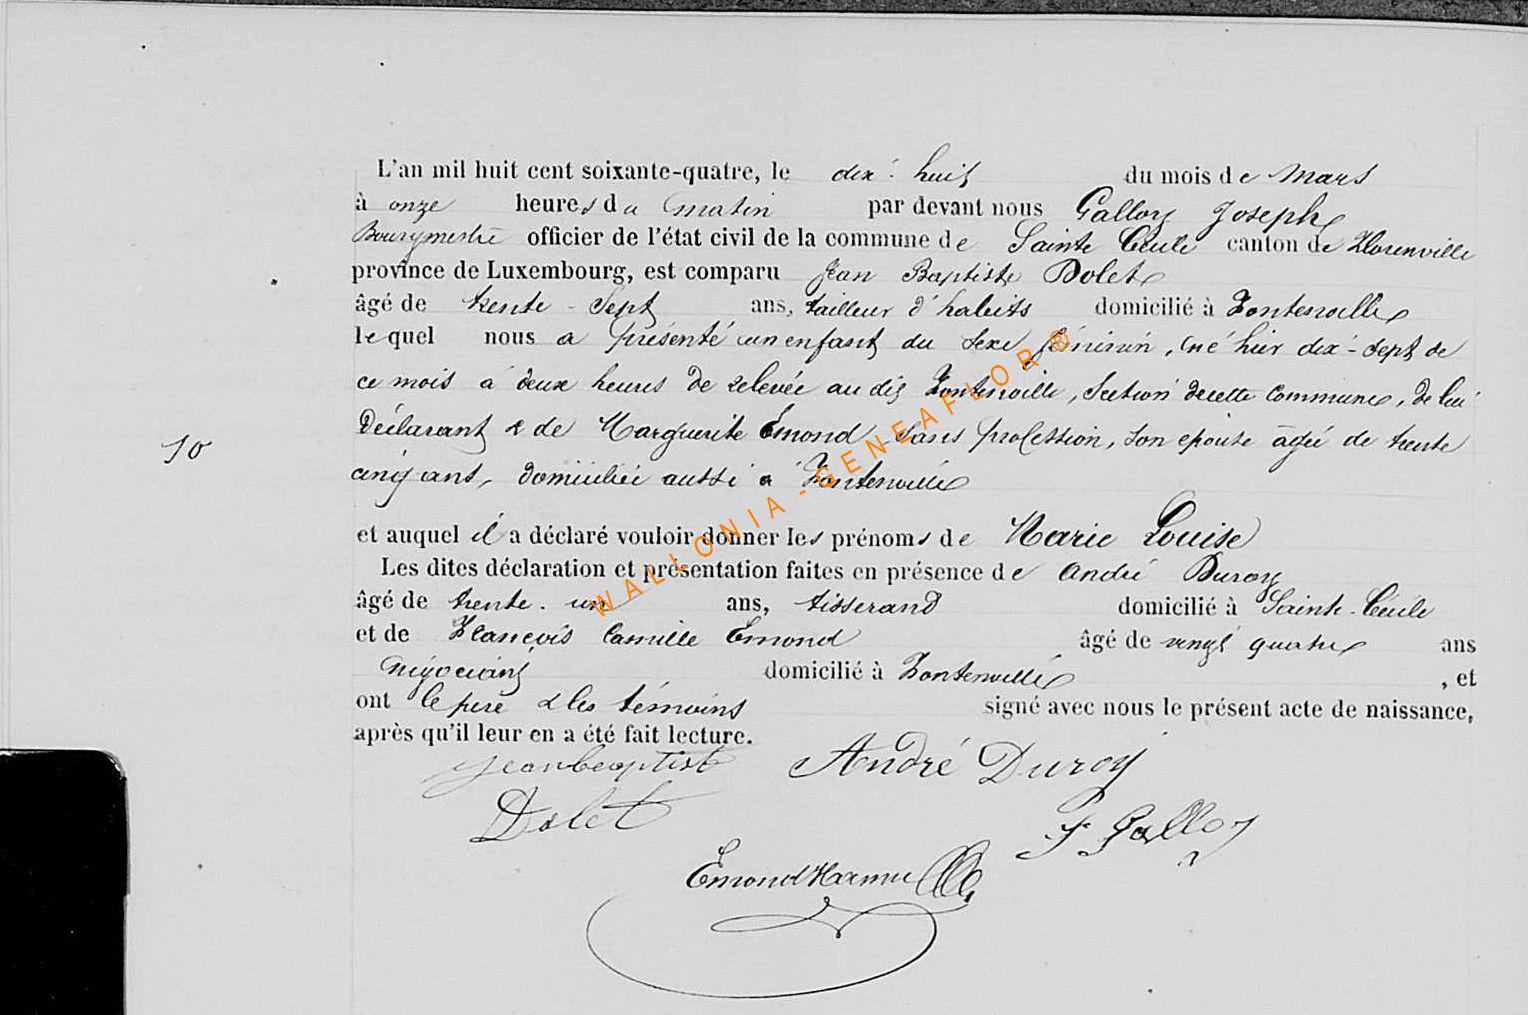 L'an mil huit cent soixante-quatre, le dix-huit du mois de Mars
à onze heures du matin par devant nous Galloy Joseph
Bourgmestre officier de l'état civil de la commune de Sainte Cécile canton de Florenville
province de Luxembourg, est comparu Jean Baptiste Dolet
âgé de trente-sept ans, tailleur d'habits domicilié à Fontenoille
lequel nous a présenté un enfant du sexe féminin, né hier dix-sept de
ce mois à deux heures de relevée au dit Fontenoille, section de cette commune, de lui
Déclarant & de Marguerite Emond, sans profession, son épouse âgée de trente
10
cinq ans, domiciliée aussi à Fontenoille
et auquel il a déclaré vouloir donner les prénoms de Marie Louise
Les dites déclaration et présentation faites en présence de André Duroy
âgé de trente-un ans, tisserand domicilié à Sainte-Cécile
et de François Camille Emond âgé de vingt quatre ans
négociant domicilié à Fontenoille, et
ont le père & les témoins signé avec nous le présent acte de naissance,
après qu'il leur en a été fait lecture.
Jeanbeaptist André Duroy
Dolet
J Galloy
Emond
WALLONIA-GENEAFLOR®